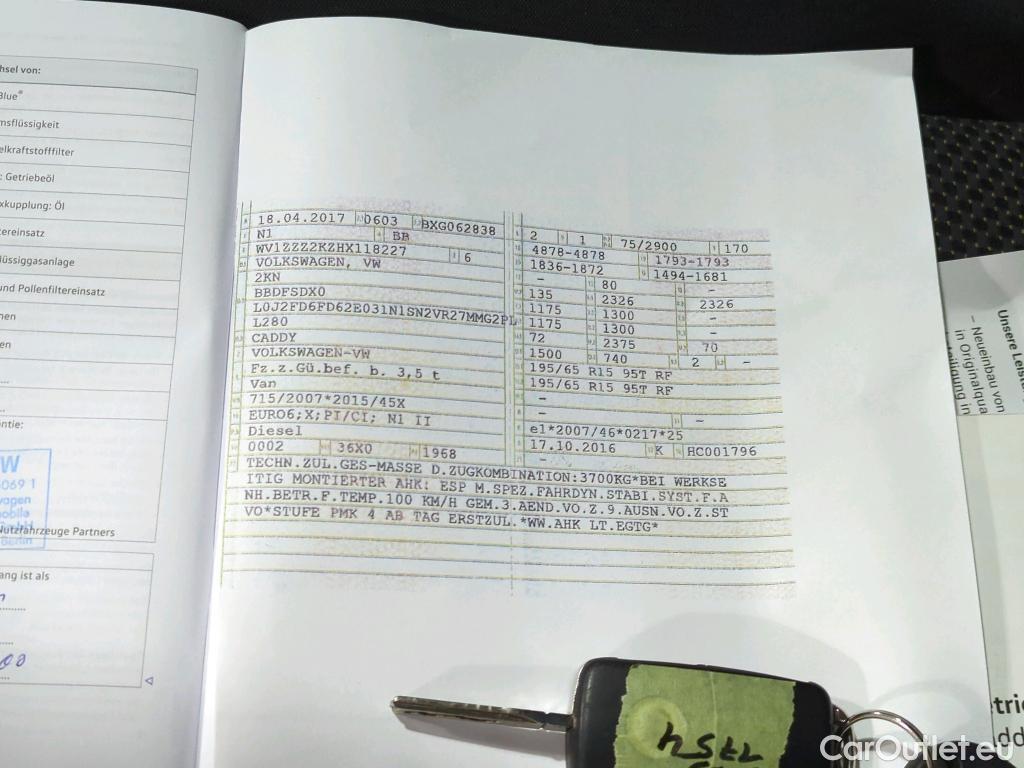 hsel von:
Blue®
msflüssigkeit
elkraftstofffilter
: Getriebeöl
xkupplung: Öl
tereinsatz
lüssiggasanlage
und Pollenfiltereinsatz
nen
en
antie:
W
069 1
wagen
mobile
GmbH
Berlin
Nutzfahrzeuge Partners
ang ist als
18.04.2017 0603 BXG062838
N1 BB
WV1ZZZ2KZHX118227 6
VOLKSWAGEN, VW
2KN
BBDFSDX0
L0J2FD6FD62E031N1SN2VR27MMG2PL
L280
CADDY
VOLKSWAGEN-VW
Fz.z.Gü.bef. b. 3,5 t
Van
715/2007*2015/45X
EURO6;X;PI/CI; N1 II
Diesel
0002 36X0 1968
2 1 75/2900 170
4878-4878 1793-1793
1836-1872 1494-1681
- 80 -
135 2326 2326
1175 1300 -
1175 1300 -
72 2375 70
1500 740 2 -
195/65 R15 95T RF
195/65 R15 95T RF
-
- -
e1*2007/46*0217*25
17.10.2016 K HC001796
-
TECHN.ZUL.GES-MASSE D.ZUGKOMBINATION:3700KG*BEI WERKSE
ITIG MONTIERTER AHK: ESP M.SPEZ.FAHRDYN.STABI.SYST.F.A
NH.BETR.F.TEMP.100 KM/H GEM.3.AEND.VO.Z.9.AUSN.VO.Z.ST
VO*STUFE PMK 4 AB TAG ERSTZUL.*WW.AHK LT.EGTG*
Unsere Leist
– Neueinbau von
in Originalqua
7754
etrie
dd
CarOutlet.eu